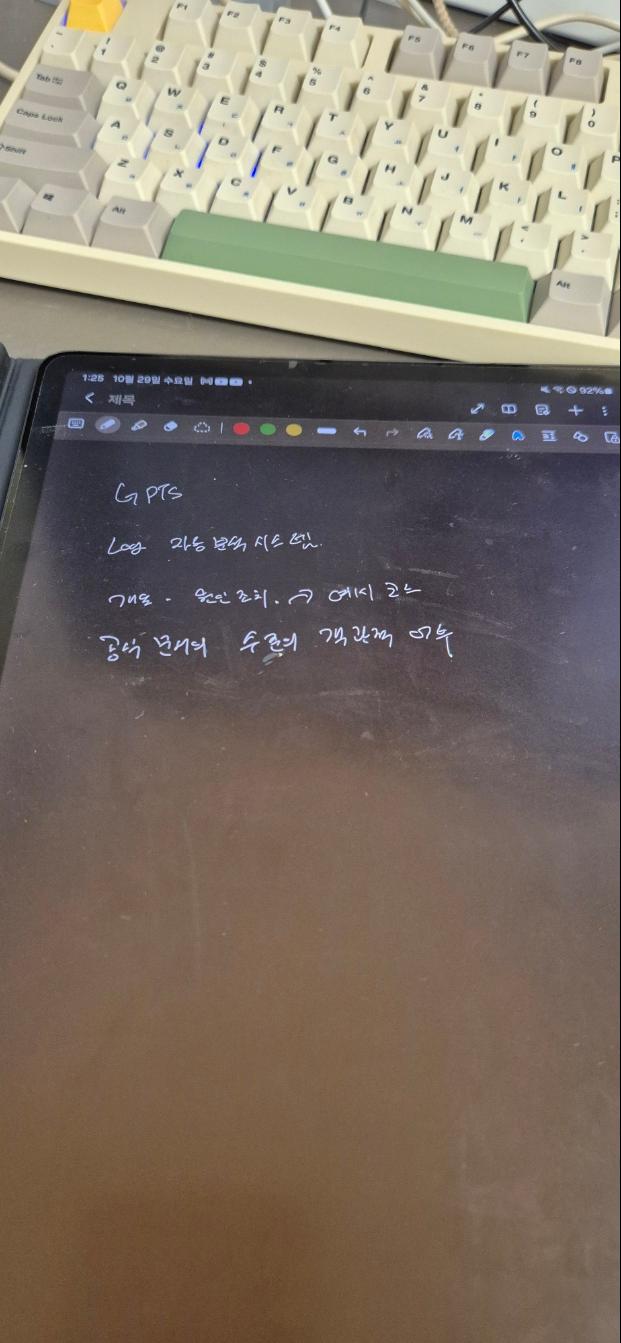 F1 F2 F3 F4 F5 F6 F7 F8
! @ 2 # 3 $ 4 % 5 ^ 6 & 7 * 8 ( 9 ) 0
Tab Q W E R T Y U I O P
Caps Lock A S D F G H J K L
Shift Z X C V B N M
Alt Alt
1:25 10월 29일 수요일 92%
제목
GPTS
Log 자동 분석 시스템.
개요 - 원인 조치. → 예시 코드
공식 문서의 수준의 객관적 여부